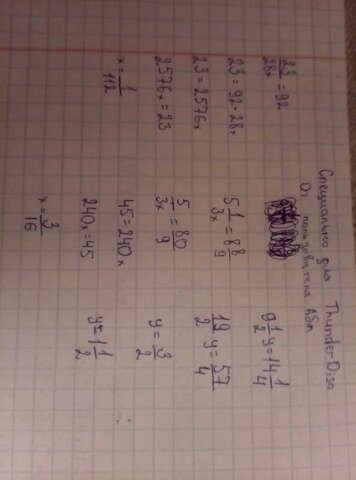 Специально для ThunderDisa
От пользователя
23/28x = 92
23 = 92·28x
23 = 2576x
2576x = 23
x = 1/112
5 1/3x = 8 8/9
5/3x = 80/9
45 = 240x
240x = 45
x = 3/16
9 1/2 y = 14 1/4
19/2 y = 57/4
y = 3/2
y = 1 1/2